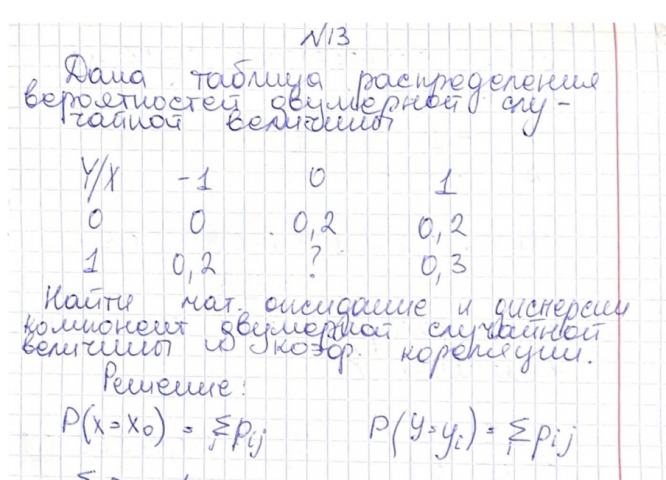 N13
Дана таблица распределения
вероятностей двумерной слу-
чайной величины
Y/X -1 0 1
0 0 0,2 0,2
1 0,2 ? 0,3
Найти мат. ожидание и дисперсии
компонент двумерной случайной
величины и коэф. кореляции.
Решение:
P(x=x₀) = Σpij P(y=yi) = Σpij